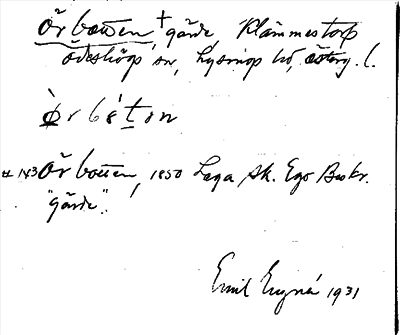 Örbotten + gärde, Klämmestorp
Ödeshögs sn, Lysings hd, Österg. l.
Ö̀r b é t o n
# 143 Örbotten, 1850 Laga Sk. Ego Beskr.
"gärde".
Emil 1931